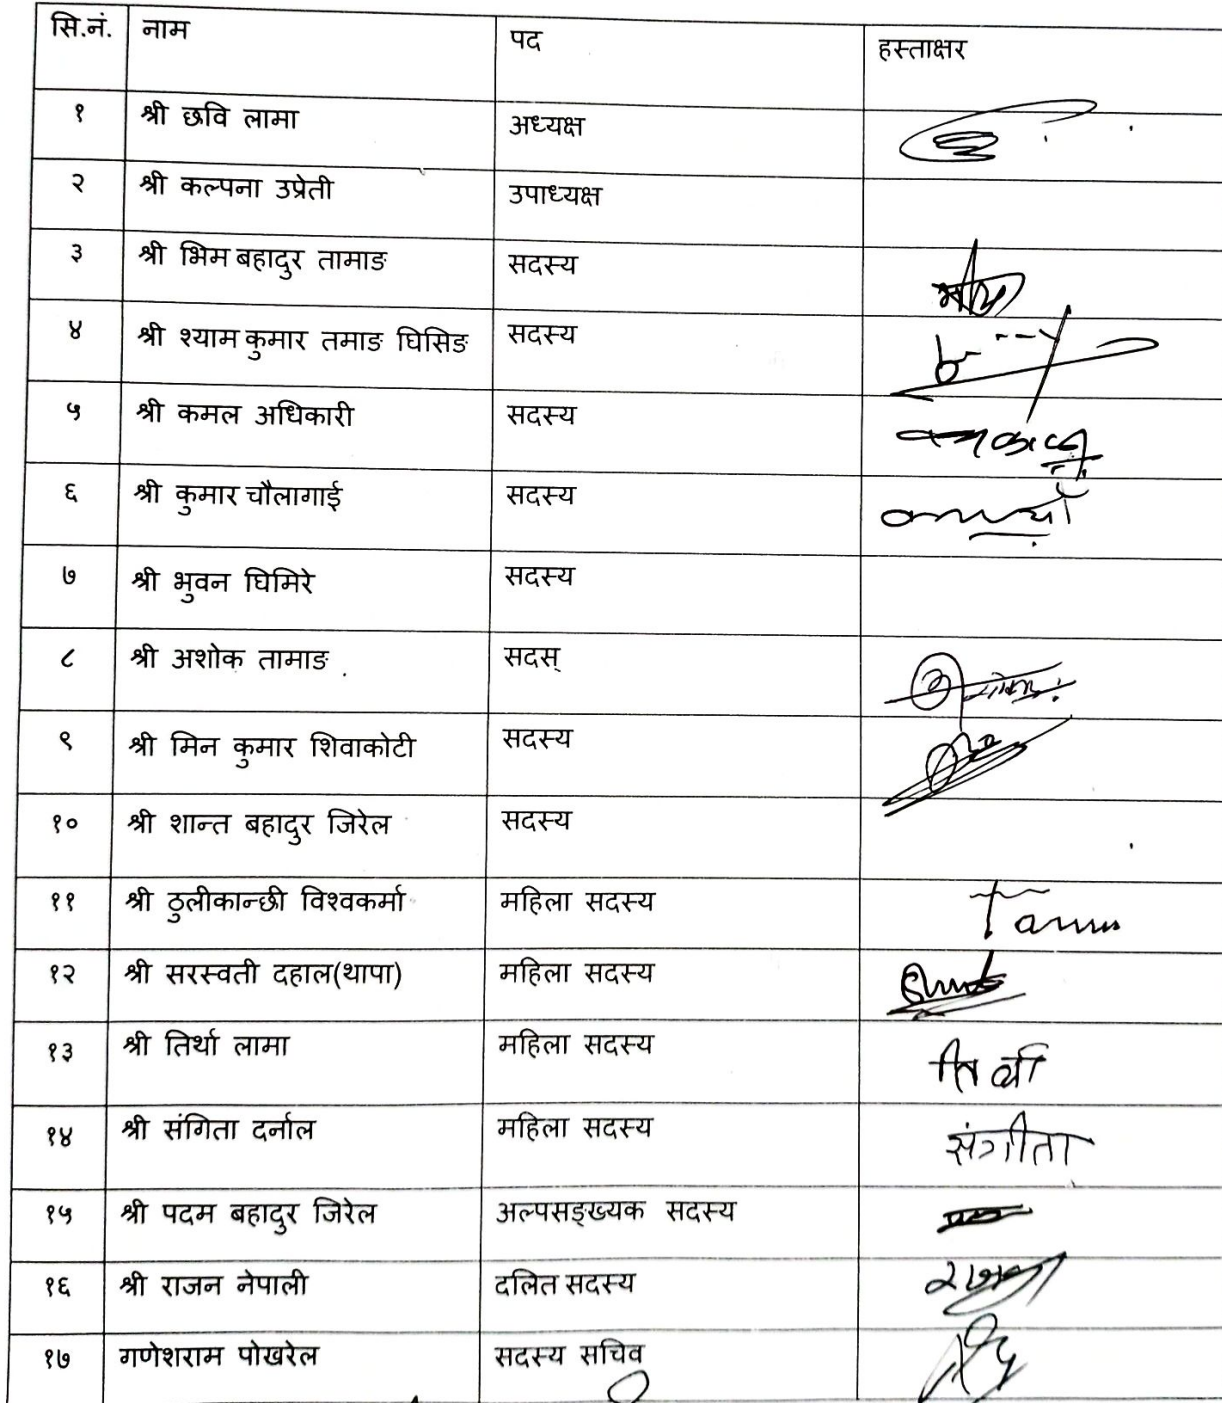 सि.नं. नाम पद हस्ताक्षर
१ श्री छवि लामा अध्यक्ष
२ श्री कल्पना उप्रेती उपाध्यक्ष
३ श्री भिम बहादुर तामाङ सदस्य
४ श्री श्याम कुमार तमाङ घिसिङ सदस्य
५ श्री कमल अधिकारी सदस्य
६ श्री कुमार चौलागाई सदस्य
७ श्री भुवन घिमिरे सदस्य
८ श्री अशोक तामाङ सदस्
९ श्री मिन कुमार शिवाकोटी सदस्य
१० श्री शान्त बहादुर जिरेल सदस्य
११ श्री ठुलीकान्छी विश्वकर्मा महिला सदस्य
१२ श्री सरस्वती दहाल(थापा) महिला सदस्य
१३ श्री तिर्था लामा महिला सदस्य
१४ श्री संगिता दर्नाल महिला सदस्य संगीता
१५ श्री पदम बहादुर जिरेल अल्पसङ्ख्यक सदस्य
१६ श्री राजन नेपाली दलित सदस्य
१७ गणेशराम पोखरेल सदस्य सचिव